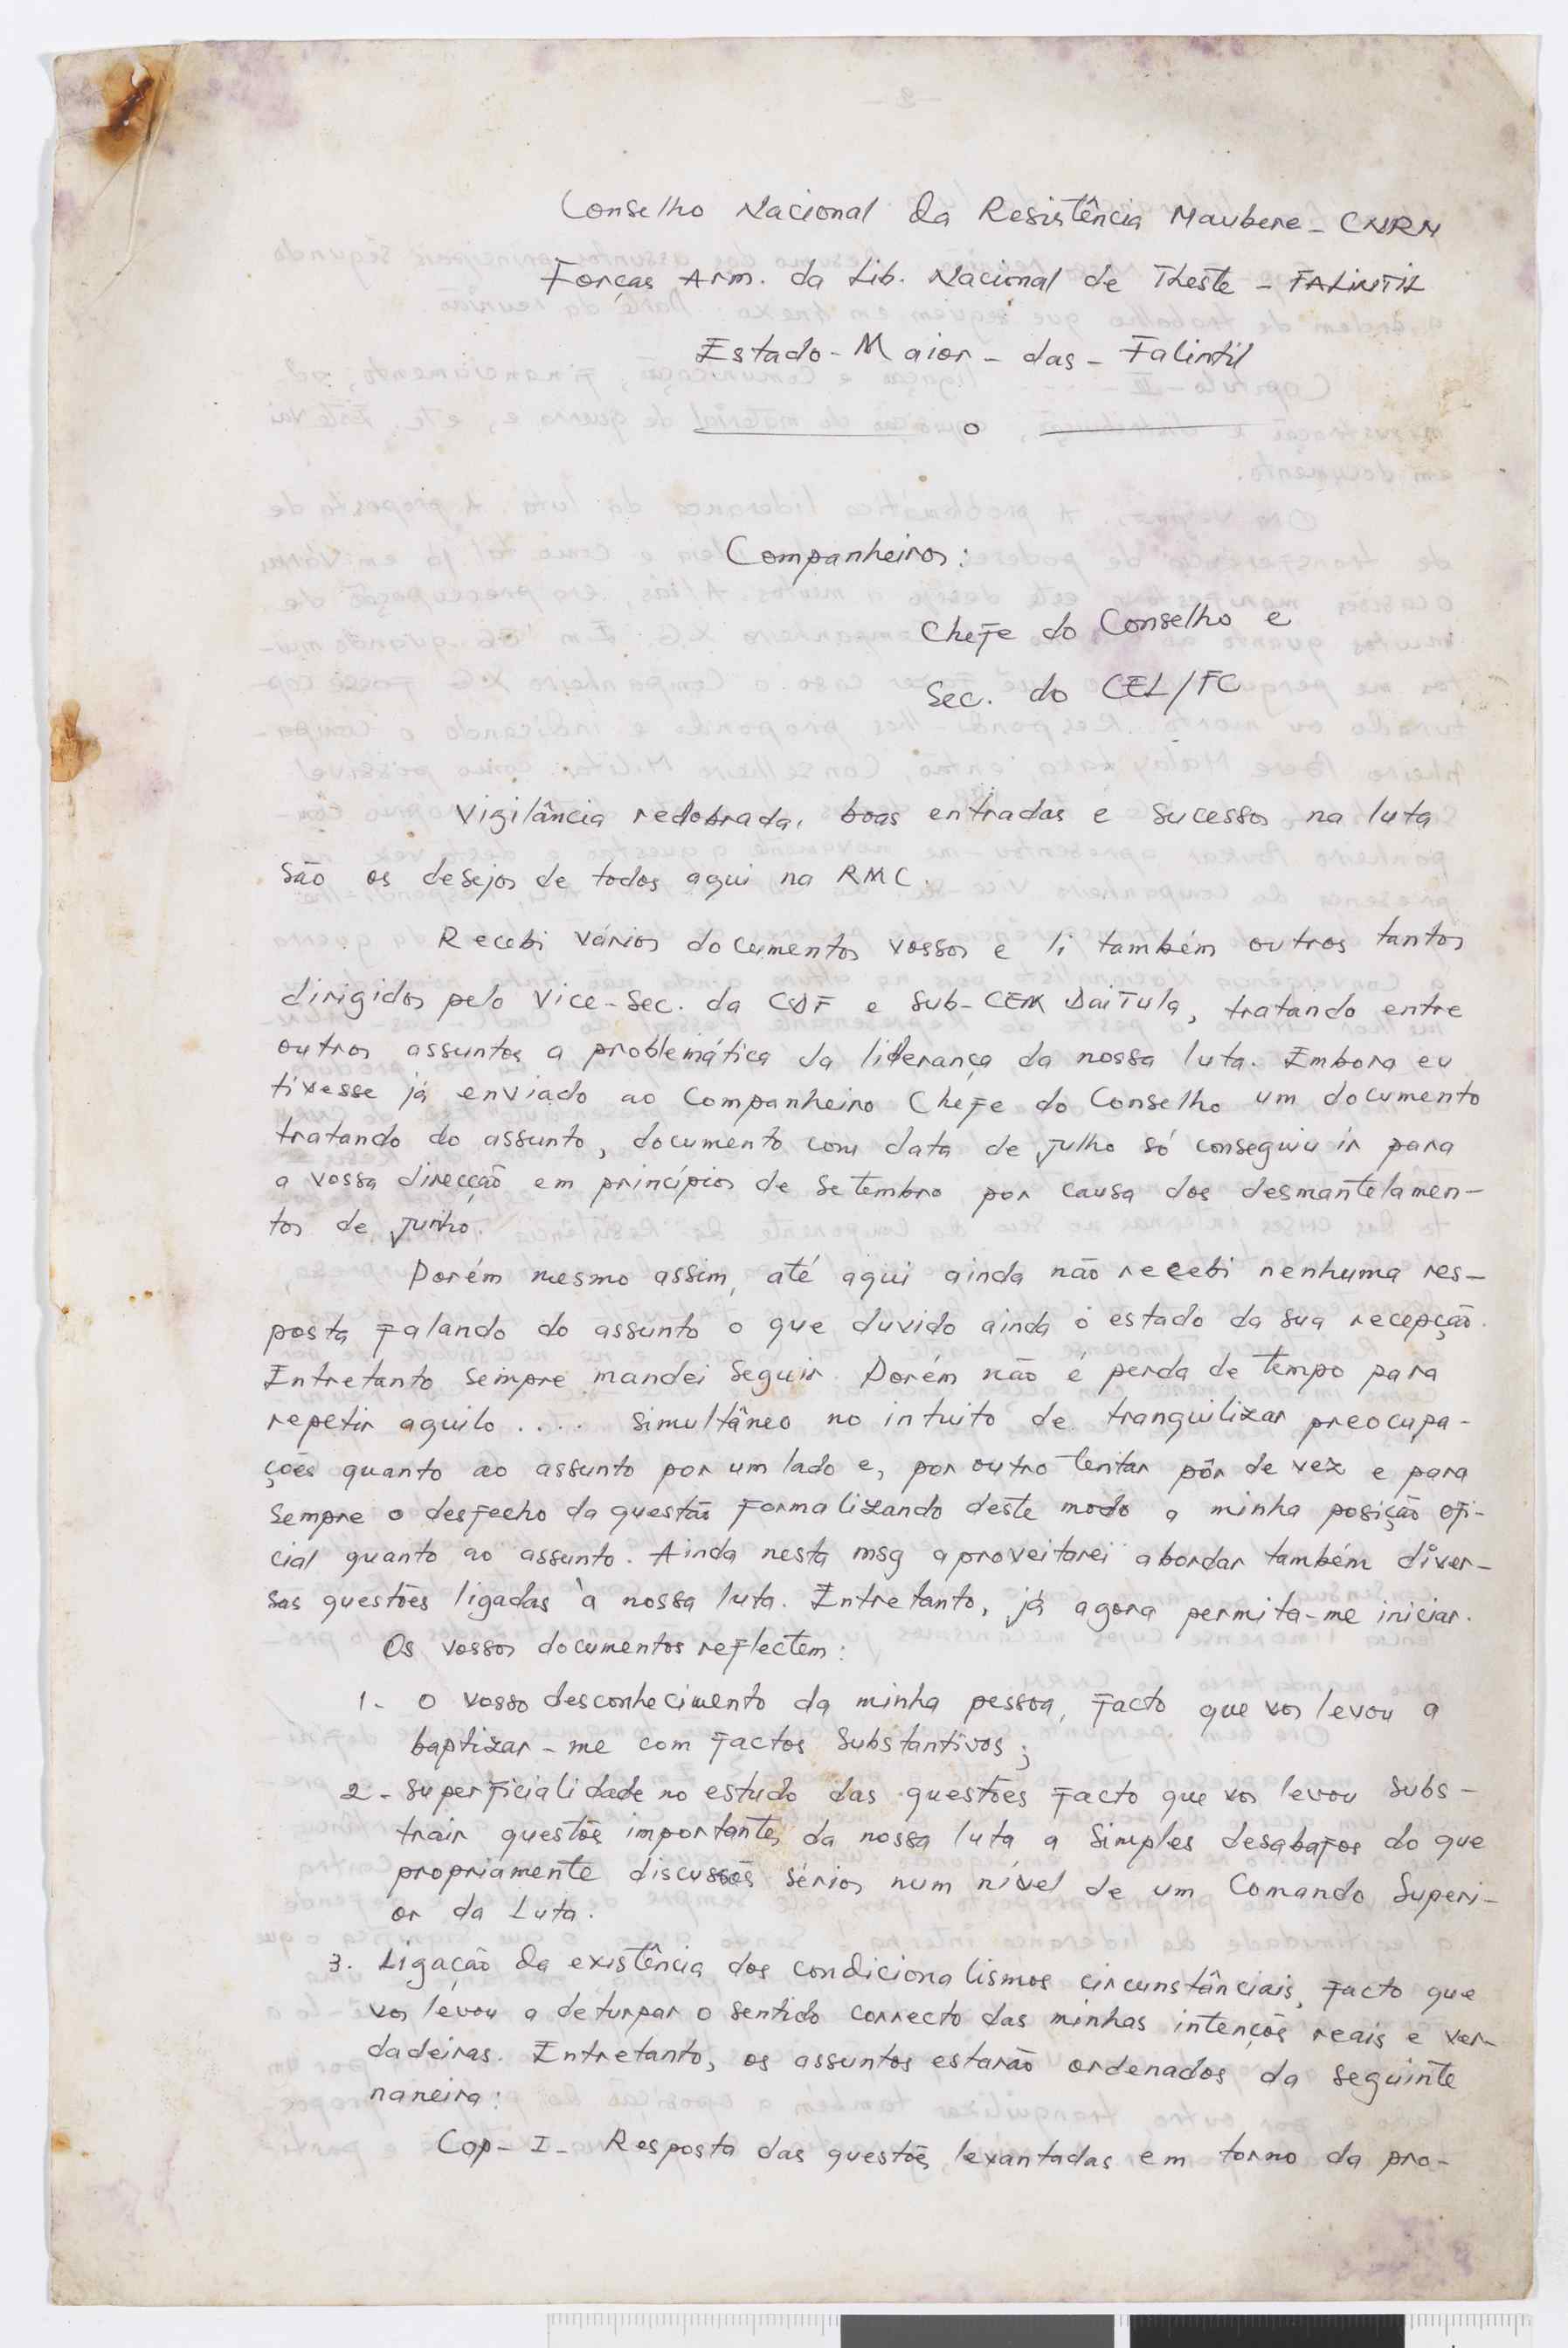 Conselho Nacional da Resistência Maubere - CNRM
Forças Arm. da Lib. Nacional de TLeste - FALINTIL
Estado-Maior-das-Falintil
Companheiros:
Chefe do Conselho e
Sec. do CEL/FC
Vigilância redobrada, boas entradas e sucessos na luta
são os desejos de todos aqui na RMC.
Recebi vários documentos vossos e li também outros tantos
dirigidos pelo Vice-Sec. da CDF e Sub-CEM DaiTula, tratando entre
outros assuntos a problemática da liderança da nossa luta. Embora eu
tivesse já enviado ao Companheiro Chefe do Conselho um documento
tratando do assunto, documento com data de julho só conseguiu ir para
a vossa direcção em princípios de Setembro por causa dos desmantelamen-
tos de junho.
Porém mesmo assim, até aqui ainda não recebi nenhuma res-
posta falando do assunto o que duvido ainda o estado da sua recepção.
Entretanto sempre mandei seguir. Porém não é perda de tempo para
repetir aquilo .... simultâneo no intuito de tranquilizar preocupa-
ções quanto ao assunto por um lado e, por outro tentar pôr de vez e para
sempre o desfecho da questão formalizando deste modo a minha posição ofi-
cial quanto ao assunto. Ainda nesta msg aproveitarei abordar também diver-
sas questões ligadas à nossa luta. Entretanto, já agora permita-me iniciar.
Os vossos documentos reflectem:
1- O vosso desconhecimento da minha pessoa, facto que vos levou a
baptizar-me com factos substantivos;
2- Superficialidade no estudo das questões facto que vos levou subs-
trair questões importantes da nossa luta a simples desabafos do que
propriamente discussões sérios num nível de um Comando Superi-
or da Luta.
3. Ligação da existência dos condicionalismos circunstânciais, facto que
vos levou a deturpar o sentido correcto das minhas intenções reais e ver-
dadeiras. Entretanto, os assuntos estarão ordenados da seguinte
naneira:
Cap-I- Resposta das questões levantadas em torno da pro-